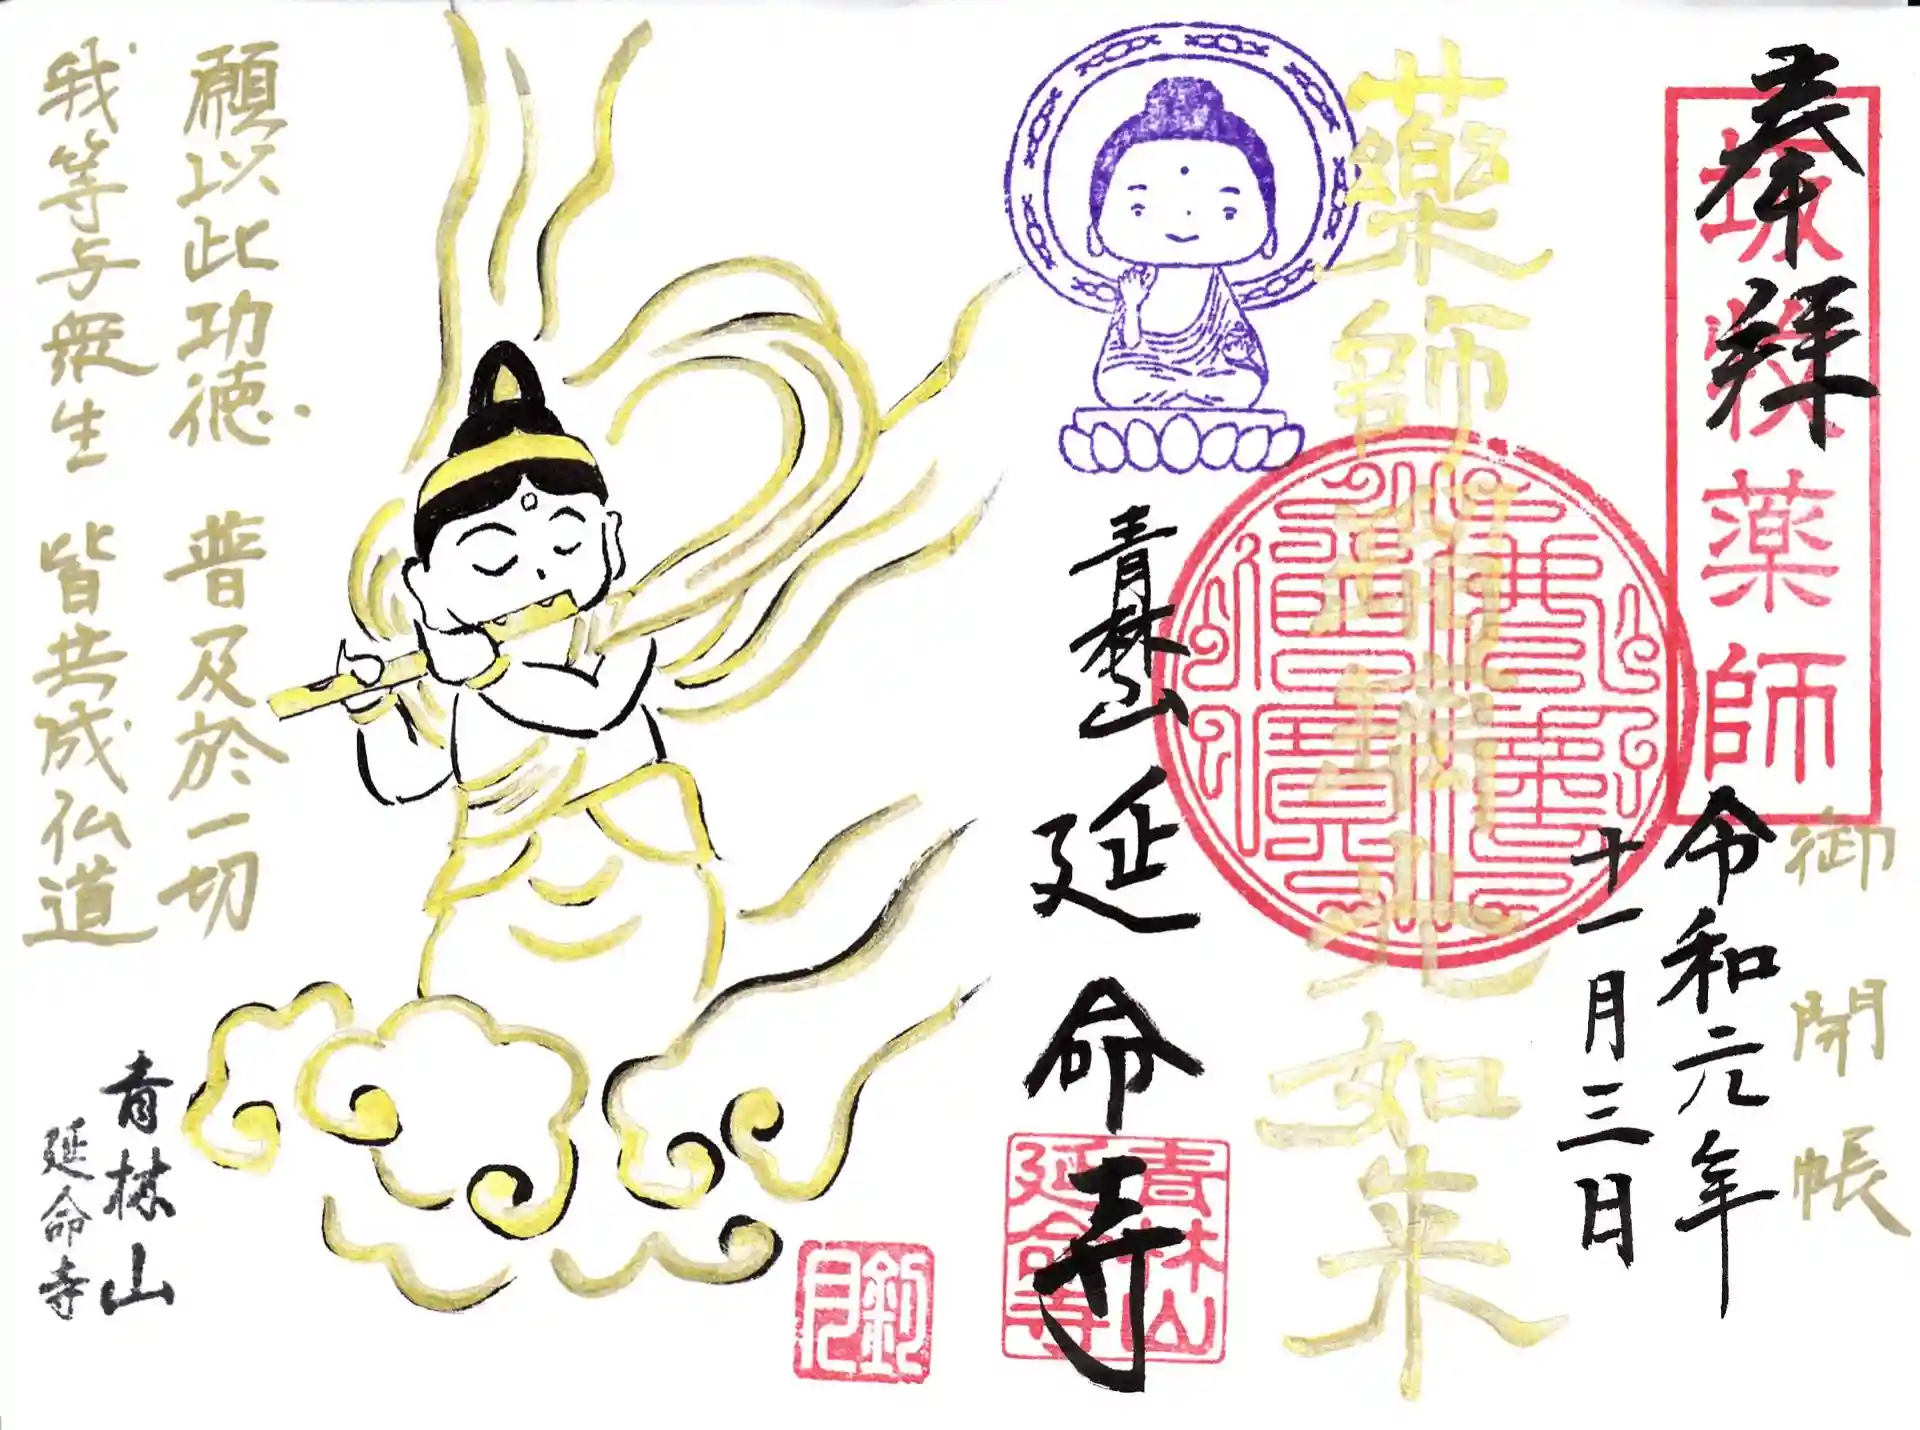 奉拝
薬師
御開帳
令和元年
十一月三日
藥師瑠璃光如来
青林山 延命寺
青林山
延命寺
願以此功徳 普及於一切
我等与衆生 皆共成仏道
青林山
延命寺